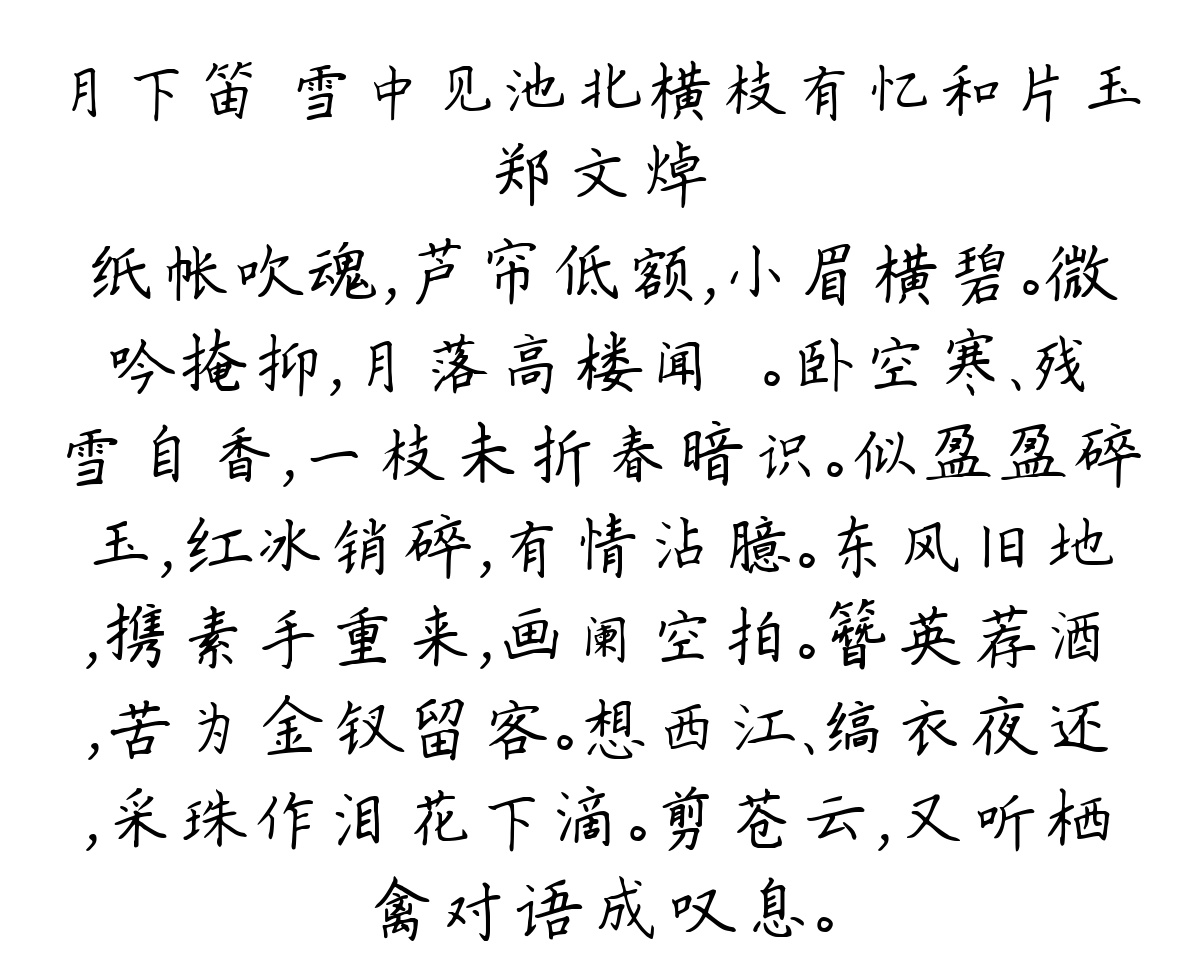 月下笛 雪中见池北横枝有忆和片玉
郑文焯
纸帐吹魂,芦帘低额,小眉横碧。微
吟掩抑,月落高楼闻 。卧空寒、残
雪自香,一枝未折春暗识。似盈盈碎
玉,红冰销碎,有情沾臆。东风旧地
,携素手重来,画阑空拍。簪英荐酒
,苦为金钗留客。想西江、缟衣夜还
,采珠作泪花下滴。剪苍云,又听栖
禽对语成叹息。